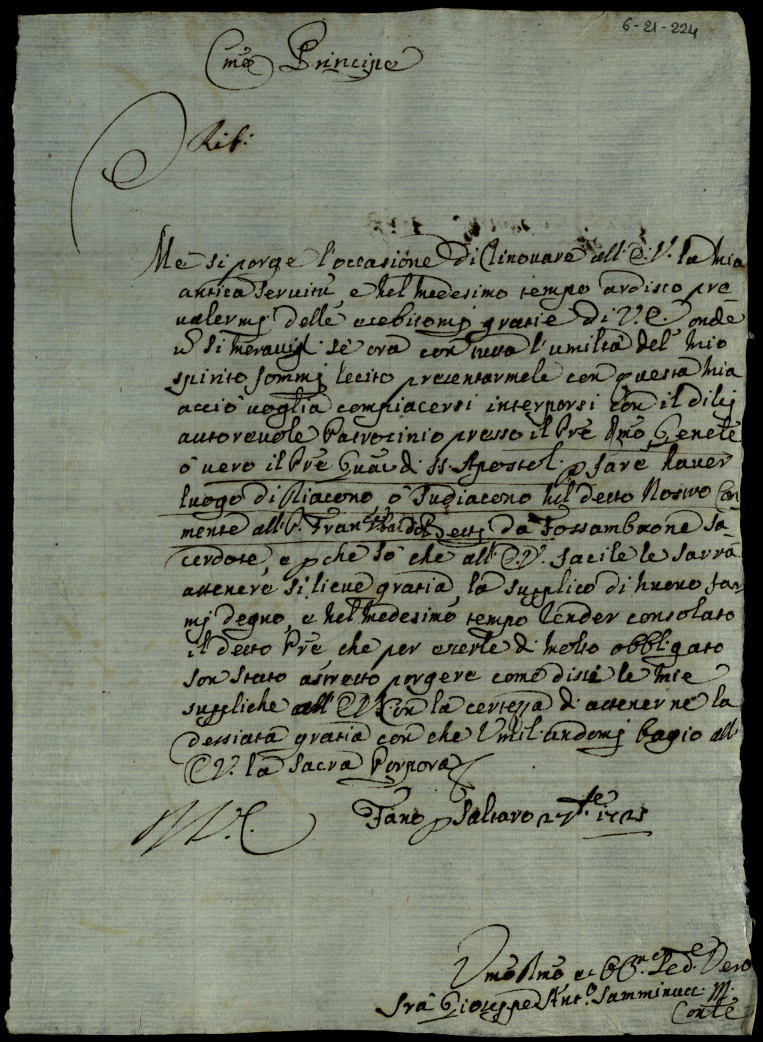 6-21-224
Emo Principe
Risp:
Me si porge l'occasione di rinovare all'E.V. la mia
antica servitù, e nel medesimo tempo ardisco pre
valermj delle gratie di V.E. onde
si meravigl se ora con tutta l'umiltà del mio
spirito sommj lecito presentarmele con questa mia
acciò voglia compiacersi interporsi con il dilej
autorevole Patrocinio presso il Pre Rmo Genele
ò vero il Pre Guard. di SS. Apostol. p fare haver
luogo di Diacono ò Sudiacono nel detto Nostro Con
mente all P. Fran da Fossambrone Sa-
cerdote, e pche sò che all'E.V. facile le sarrà
attenere si lieve gratia, la supplico di nuovo far
mj degno, e nel medesimo tempo render consolato
il detto Pre che per eserle di molto obbligato
son stato astretto porgere come dissi le mie
suppliche all'E.V. con la certezza di attener ne la
dessiata gratia con che umiliandomj bagio all'
E.V. la Sacra Porpora
V.E.
Fano p Saltaro 27 1725
Umo Dmo et Obb.mo Sed.e Vero
Fra Gioseppe Ant.o Samminucci M.
Conte